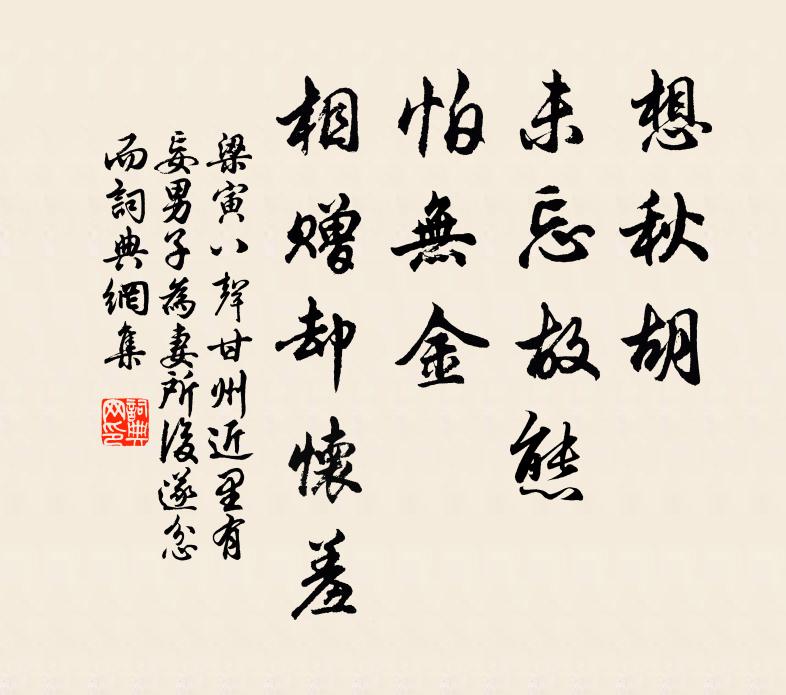 想秋胡
未忘故態
怕無金
相贈却懷羞
梁寅八聲甘州近里有
妄男子為妻所後遂忿
而詞典網集
詞典
网印